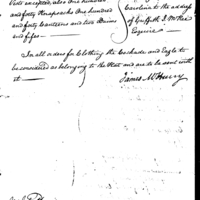 Vests excepted, also One hundred
and forty Knapsacks One hundred
and forty Canteens and two Drums
and fifes.
Carolina to the address
of Griffith J. McRee
Esquire
In all orders for Clothing the Cockade and Eagle to
be considered as belonging to the Hat and are to be sent with
it
James McHenry